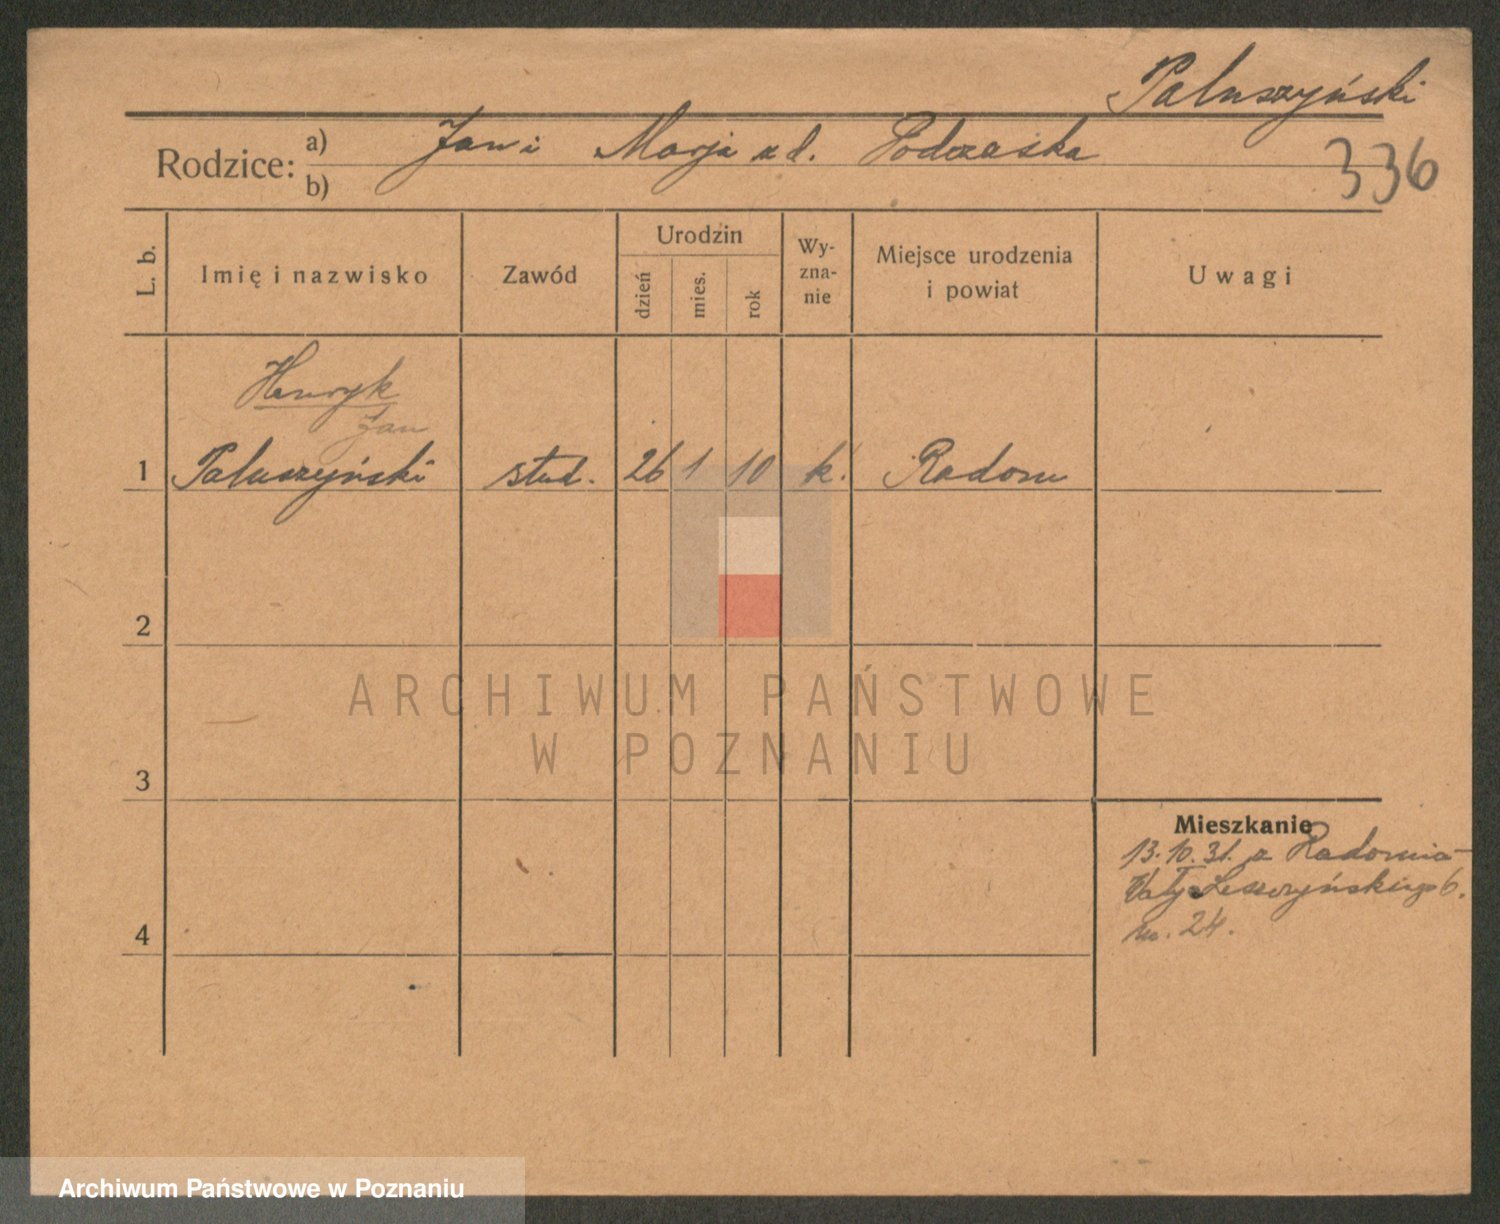 Paluszyński
Rodzice: a) Jan i Marja z d. Podczaska
b)
336
L. b. Imię i nazwisko Zawód Urodzin dzień mies. rok Wy-zna-nie Miejsce urodzenia i powiat Uwagi
Henryk
Jan
1 Paluszyński stud. 26 1 10 k. Radom
2
ARCHIWUM PAŃSTWOWE
W POZNANIU
3
Mieszkanie
13.10.31. z Radomia
Wały Leszczyńskiego 6.
4
m. 24.
Archiwum Państwowe w Poznaniu